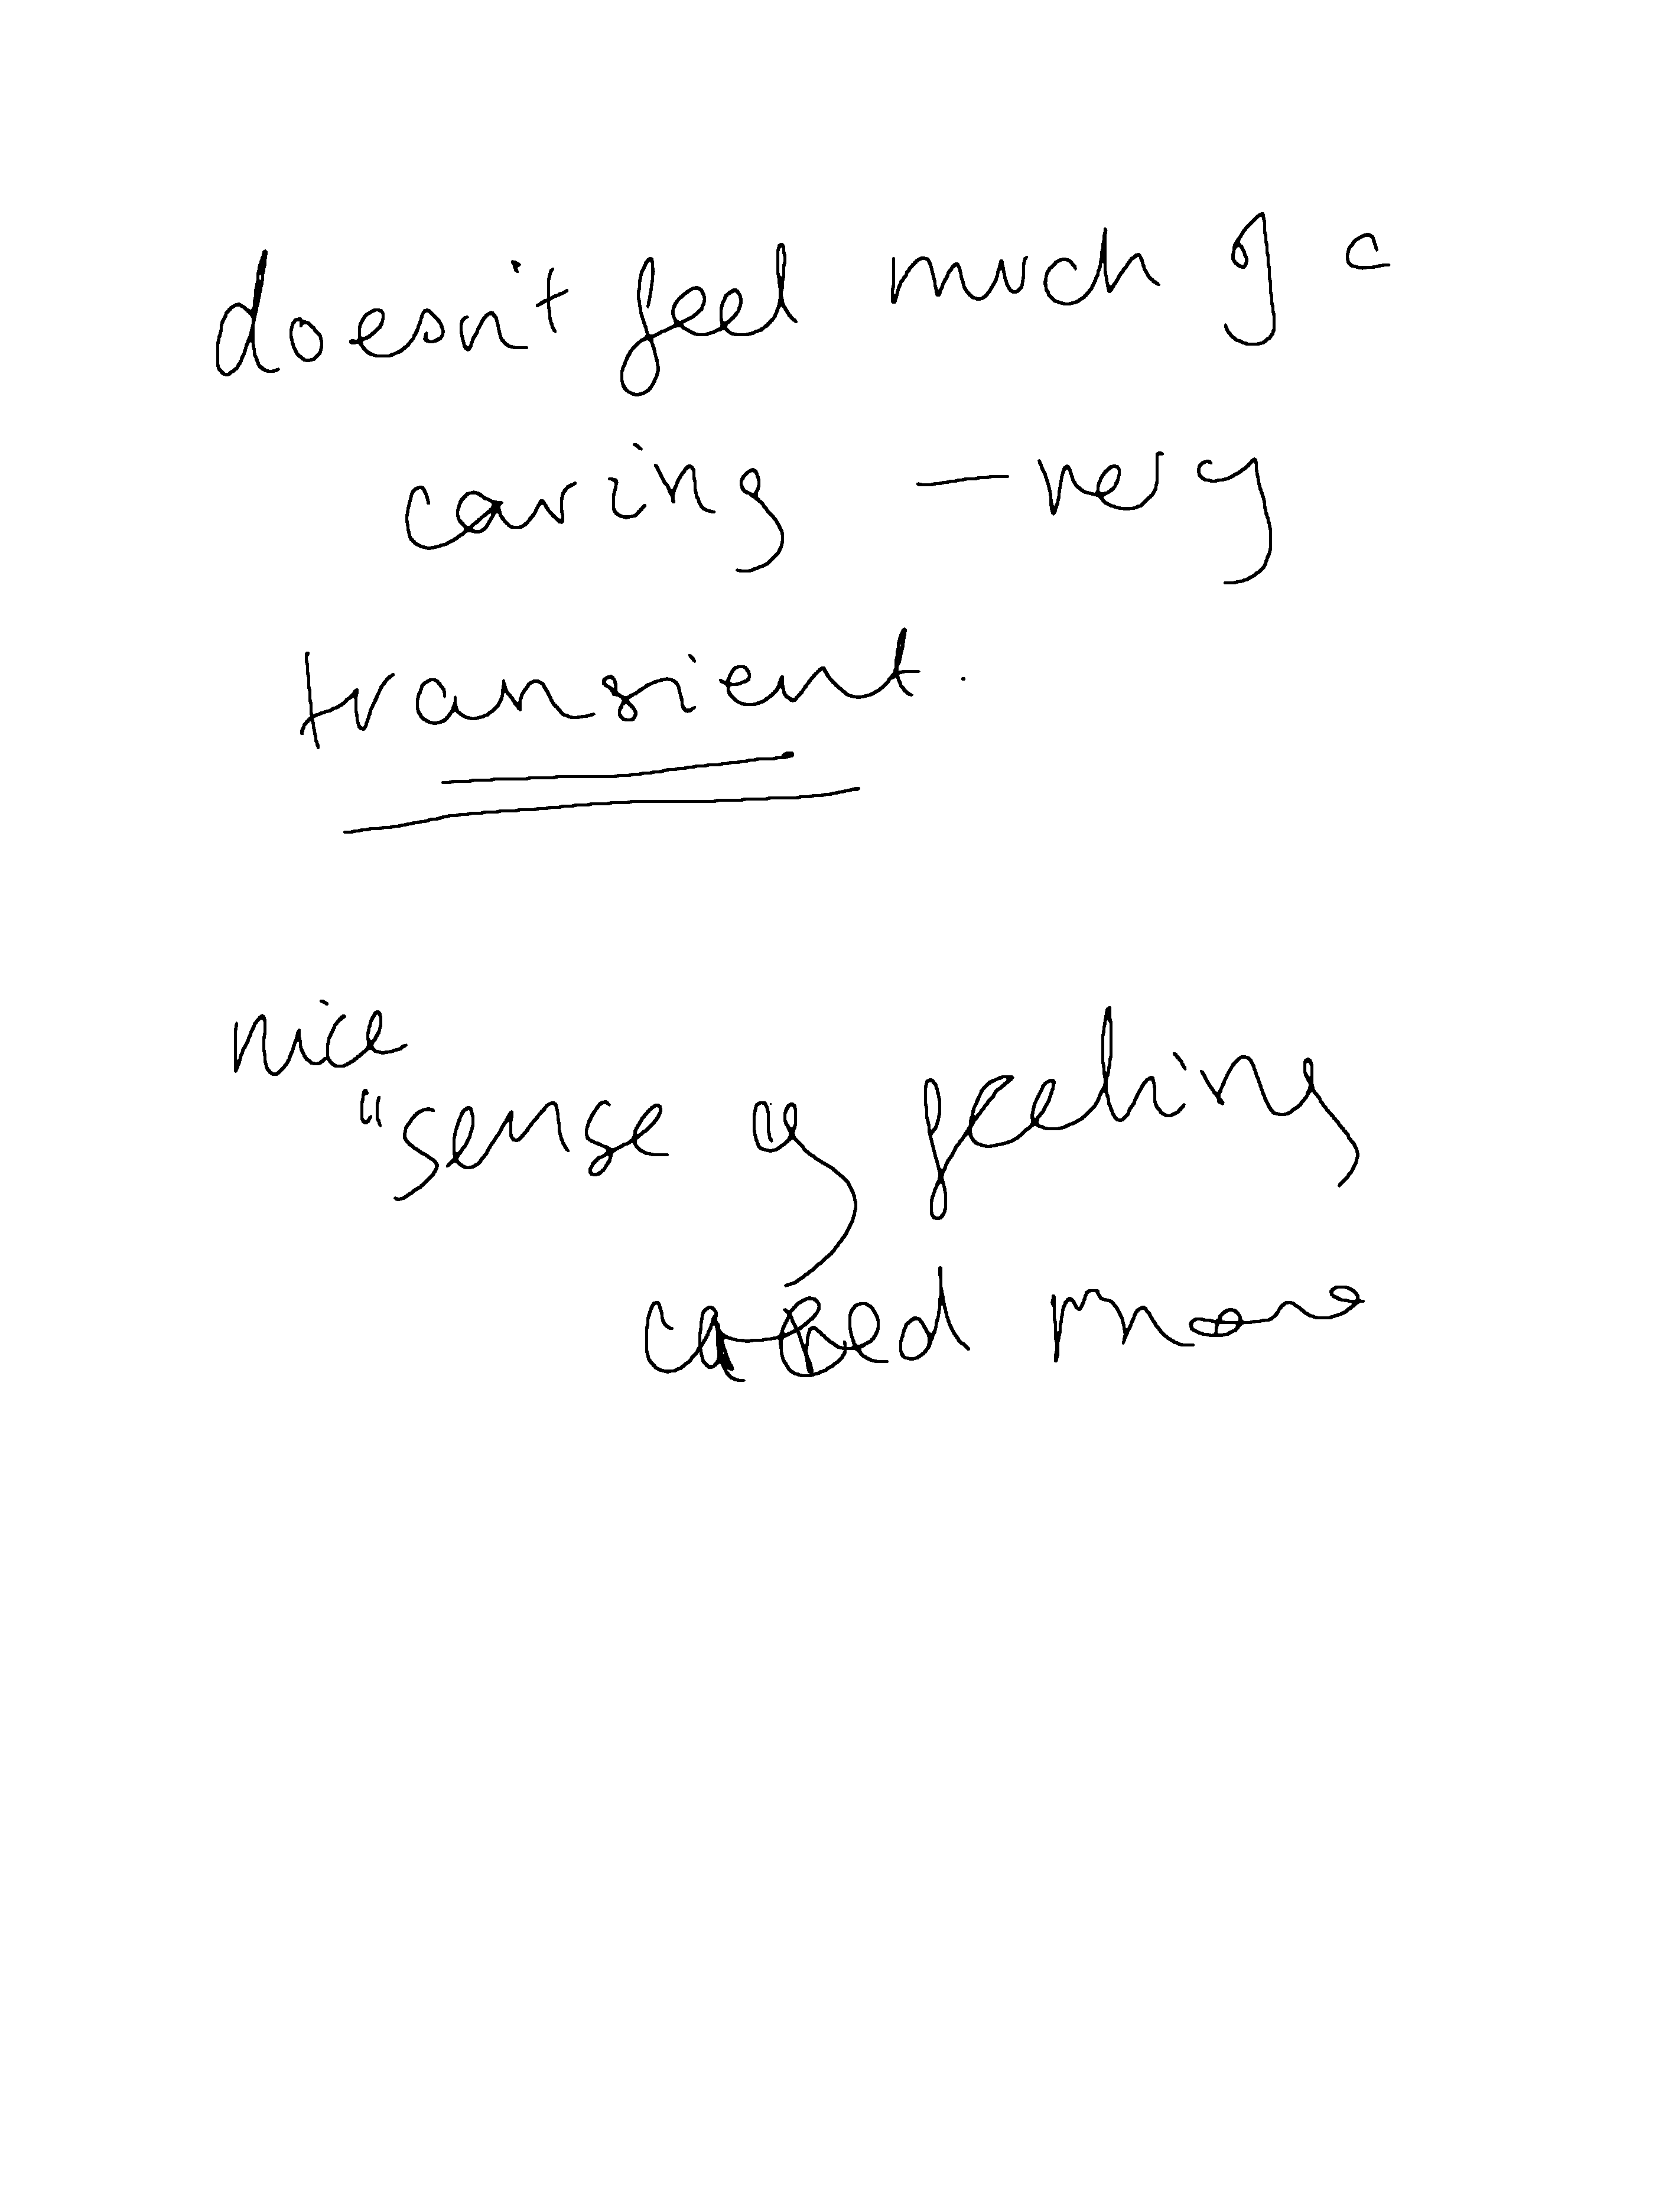 doesn't feel much of a
caring — very
transient.
nice
"sense of feeling
cared more